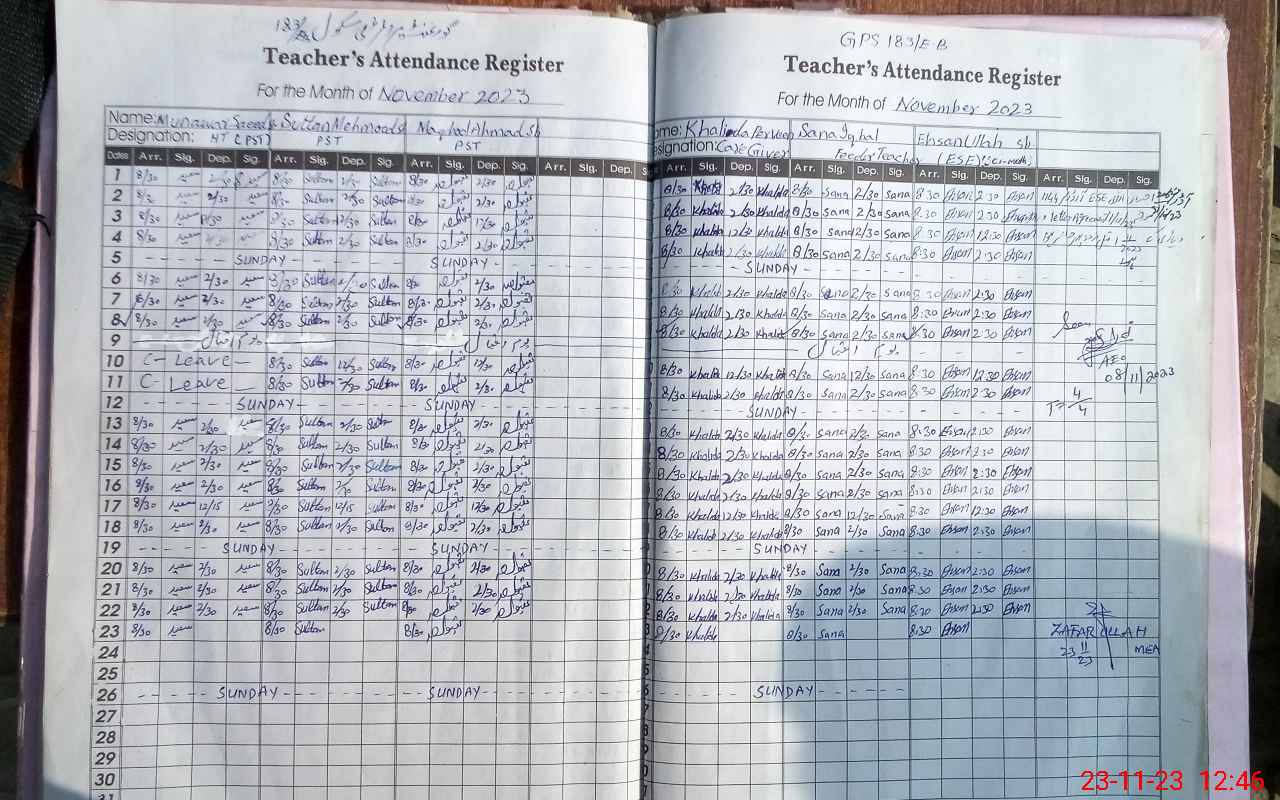 Teacher's Attendance Register
For the Month of November 2023
Name: Munawar Saeed Sultan Mehmood Maqbool Ahmad sb
Designation: HT (PST) PST PST
Dates Arr. Sig. Dep. Sig. Arr. Sig. Dep. Sig. Arr. Sig. Dep. Sig. Arr. Sig. Dep.
1 8/30 سعید 8/30 Sultan 2/30 Sultan 8/30 2/30
2 8/30 سعید 2/30 8/30 Sultan 2/30 Sultan 8/30 2/30
3 8/30 سعید 8/30 Sultan Sultan 8/30 12/30
4 8/30 سعید 8/30 Sultan 2/30 Sultan 2/30
5 SUNDAY SUNDAY
6 8/30 سعید 2/30 سعید 8/30 Sultan 2/30 Sultan 8/30 2/30
7 8/30 سعید 2/30 سعید 8/30 Sultan 2/30 Sultan 8/30 2/30
8 8/30 سعید 2/30 سعید 8/30 Sultan 2/30 Sultan 8/30 2/30
9 یوم اقبال یوم اقبال
10 C- Leave 8/30 Sultan 12/30 Sultan 8/30 12/30
11 C- Leave 8/30 Sultan 2/30 Sultan 8/30 2/30
12 SUNDAY SUNDAY
13 8/30 سعید 2/30 سعید 8/30 Sultan 2/30 Sultan 8/30 2/30
14 8/30 سعید 2/30 سعید 8/30 Sultan 2/30 Sultan 8/30 2/30
15 8/30 سعید 2/30 سعید 8/30 Sultan 2/30 Sultan 8/30 2/30
16 8/30 سعید 2/30 سعید 8/30 Sultan 2/30 Sultan 8/30 2/30
17 8/30 سعید 12/15 سعید 8/30 Sultan 12/15 Sultan 8/30 12/30
18 8/30 سعید 2/30 سعید 8/30 Sultan 2/30 Sultan 8/30 2/30
19 SUNDAY SUNDAY
20 8/30 سعید 2/30 سعید 8/30 Sultan 2/30 Sultan 8/30 2/30
21 8/30 سعید 2/30 سعید 8/30 Sultan 2/30 Sultan 8/30 2/30
22 8/30 سعید 2/30 سعید 8/30 Sultan 2/30 Sultan 8/30 2/30
23 8/30 سعید 8/30 Sultan 8/30
24
25
26 SUNDAY SUNDAY
27
28
29
30
31
GPS 183/E-B
Teacher's Attendance Register
For the Month of November 2023
Khalida Perveen Sana Iqbal Ehsan Ullah sb
Designation: Care Giver Feeder Teacher (ESE)
Arr. Sig. Dep. Sig. Arr. Sig. Dep. Sig. Arr. Sig. Dep. Sig. Arr. Sig. Dep. Sig.
8/30 2/30 Khalida 8/30 Sana 2/30 Sana 8:30 Ehsan 2:30 Ehsan
8/30 Khalida 2/30 Khalida 8/30 Sana 2/30 Sana 8:30 Ehsan 2:30 Ehsan
8/30 Khalida 12/30 Khalida 8/30 Sana 12/30 Sana 8:30 Ehsan 12:30 Ehsan
8/30 Khalida 2/30 Khalida 8/30 Sana 2/30 Sana 8:30 Ehsan 2:30 Ehsan
SUNDAY
8/30 Khalida 2/30 Khalida 8/30 Sana 2/30 Sana 8:30 Ehsan 2:30 Ehsan
8/30 Khalida 2/30 Khalida 8/30 Sana 2/30 Sana 8:30 Ehsan 2:30 Ehsan
8/30 Khalida 2/30 Khalida 8/30 Sana 2/30 Sana 8:30 Ehsan 2:30 Ehsan Seen
یوم اقبال AEO
8/30 Khalida 12/30 Khalida 8/30 Sana 12/30 Sana 8:30 Ehsan 12:30 Ehsan 08/11/2023
8/30 Khalida 2/30 Khalida 8/30 Sana 2/30 Sana 8:30 Ehsan 2:30 Ehsan
SUNDAY T=4/4
8/30 Khalida 2/30 Khalida 8/30 Sana 2/30 Sana 8:30 Ehsan 2:30 Ehsan
8/30 Khalida 2/30 Khalida 8/30 Sana 2/30 Sana 8:30 Ehsan 2:30 Ehsan
8/30 Khalida 2/30 Khalida 8/30 Sana 2/30 Sana 8:30 Ehsan 2:30 Ehsan
8/30 Khalida 2/30 Khalida 8/30 Sana 2/30 Sana 8:30 Ehsan 2:30 Ehsan
8/30 Khalida 12/30 Khalida 8/30 Sana 12/30 Sana 8:30 Ehsan 12:30 Ehsan
8/30 Khalida 2/30 Khalida 8/30 Sana 2/30 Sana 8:30 Ehsan 2:30 Ehsan
SUNDAY
8/30 Khalida 2/30 Khalida 8/30 Sana 2/30 Sana 8:30 Ehsan 2:30 Ehsan
8/30 Khalida 2/30 Khalida 8/30 Sana 2/30 Sana 8:30 Ehsan 2:30 Ehsan
8/30 Khalida 2/30 Khalida 8/30 Sana 2/30 Sana 8:30 Ehsan 2:30 Ehsan
8/30 Khalida 8/30 Sana 8:30 Ehsan ZAFAR ULLAH
23 11 23 MEA
SUNDAY
23-11-23 12:46